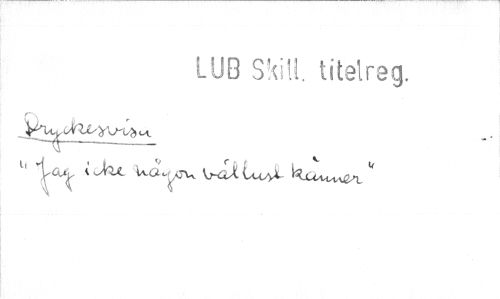 LUB Skill. titelreg.
Dryckesvisu
"Jag icke någon vällust känner"